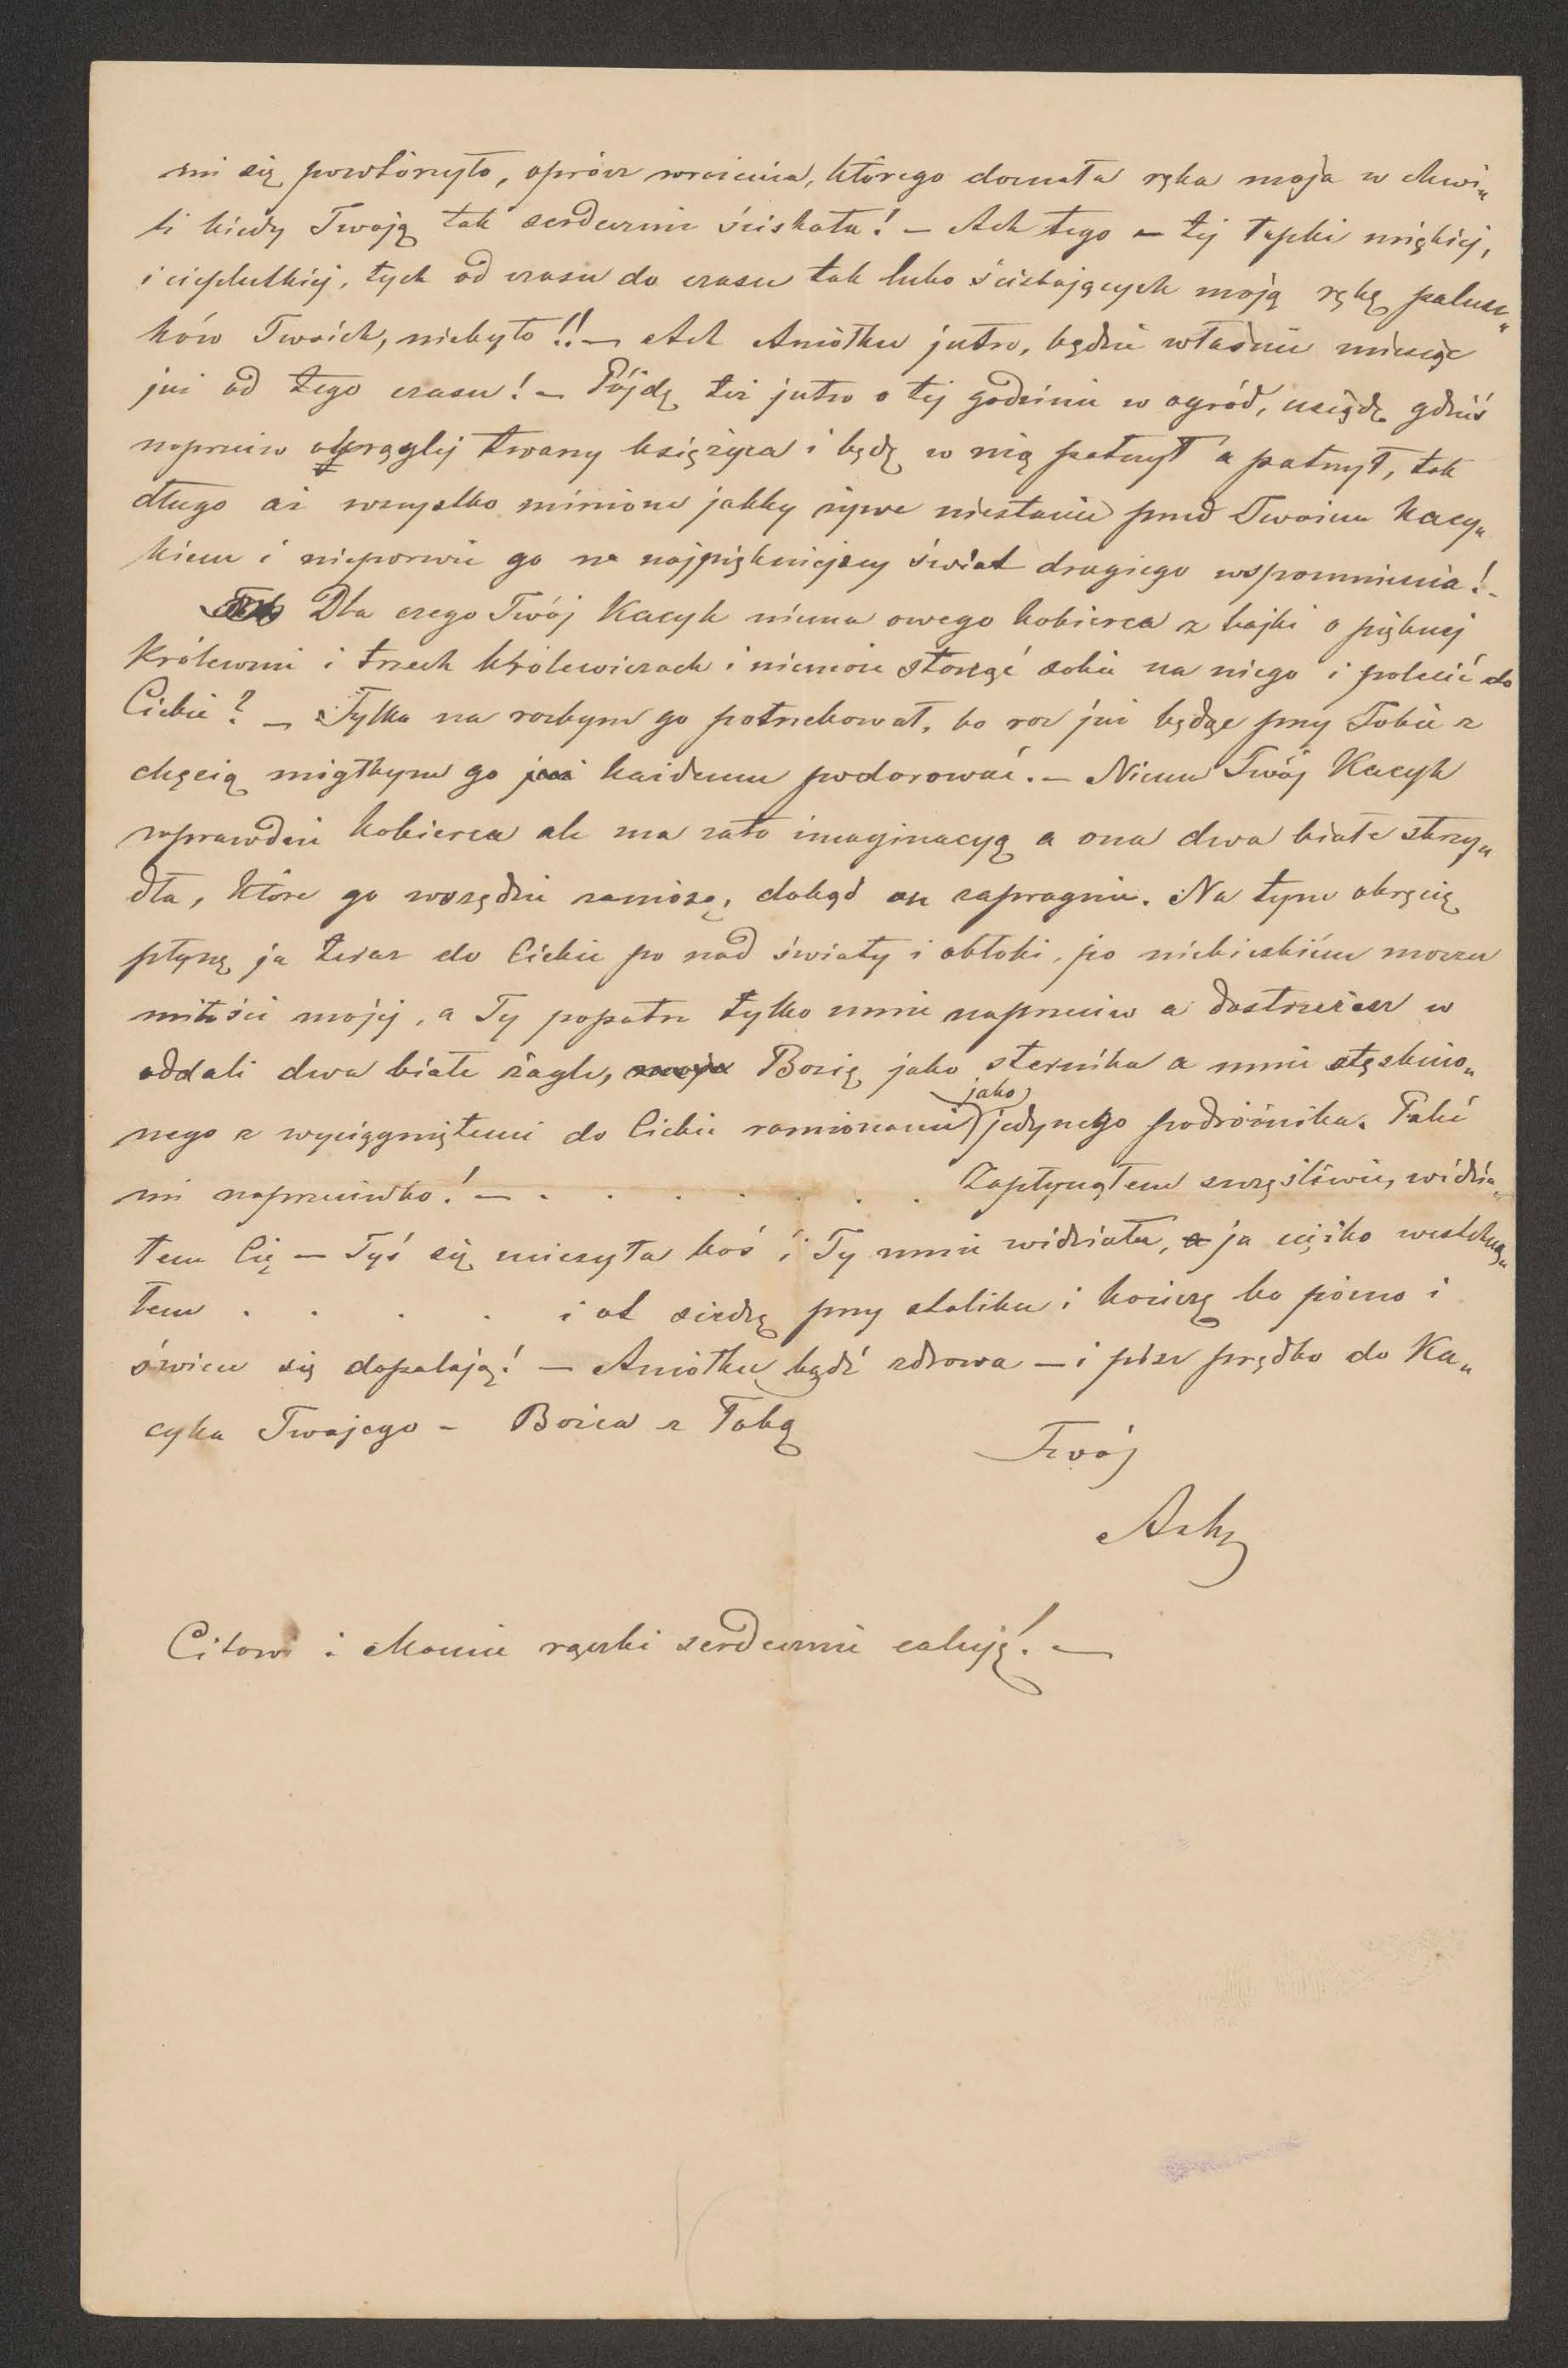 mi się powtórzyło, oprócz wrażenia, którego doznała ręka moja w chwi„
li kiedy Twoją tak serdecznie ściskała! — Ach tego — tej łapki miękiéj,
i cieplutkiéj, tych od czasu do czasu tak lubo ściskających moją rękę palusz„
ków Twoich, niebyło!! — Ach Aniołku jutro, będzie właśnie miesiąc
już od tego czasu! — Pójdę też jutro o tej godzinie w ogród, usiędę gdzieś
naprzeciw okrągłej twarzy księżyca i będę w nią patrzył a patrzył, tak
długo aż wszystko minione jakby żywe niestanie przed Twoim Kacy„
kiem i nieporwie go na najpiękniejszy świat drugiego wspomnienia! -
Dla czego Twój Kacyk niema owego kobierca z bajki o pięknej
Królewnie i trzech królewiczach i niemoże stanąć sobie na niego i polecić do
Ciebie? — Tylko na razbym go potrzebował, bo raz już będąc przy Tobie z
chęcią mógłbym go już każdemu podarować. — Niema Twój Kacyk
wprawdzie kobierca ale ma zato imaginacyą a ona dwa białe skrzy„
dła, które go wszędzie zaniosą, dokąd on zapragnie. Na tym okręcie
płynę ja teraz do Ciebie po nad światy i obłoki, po niebieskiém morzu
miłości mojéj, a Ty popatrz tylko mnie naprzeciw a dostrzeżesz w
oddali dwa białe żagle, Bozię jako sternika a mnie stęsknio„
nego z wyciągniętemi do Ciebie ramionami jako jedynego podróżnika. Patrz
mi naprzeciwko! — . . . . . . . Zapłynąłem szczęśliwie, widzia„
łem Cię — Tyś się cieszyła boś i Ty mnie widziała, a ja ciężko westchną„
łem . . . . i ot siedzę przy stoliku i kończę bo późno i
świece się dopalają! — Aniołku bądź zdrowa — i pisz prędko do Ka„
cyka Twojego - Bozia z Tobą
Twój
Citowi i Mamie rączki serdecznie całuję! —